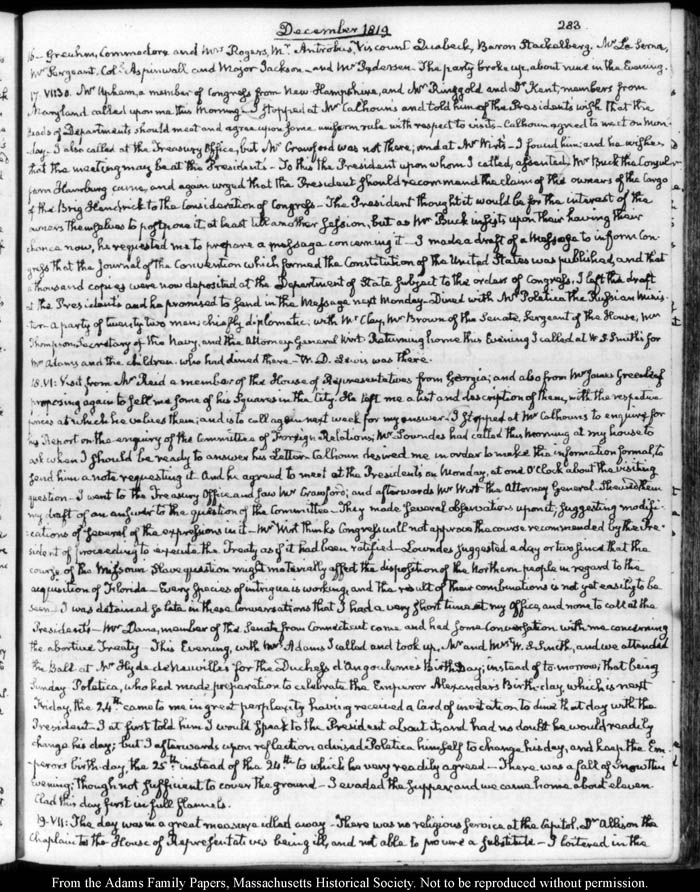 December 1819 283
16 - Greuhm, Commodore and Mrs Rogers, Mr Antrobus, Viscount Quabeck, Baron Stackelberg. Mr La Serna,
Mr Sergeant, Coll. Aspinwall and Major Jackson - and Mr Pedersen - The party broke up, about nine in the Evening.
17. VII:30. Mr Upham, a member of Congress from New Hampshire, and Mr Ringgold and Dr Kent, members from
Maryland called upon me this Morning - I stopped at Mr Calhoun's and told him of the President's wish that the
Heads of Departments should meet and agree upon some uniform rule with respect to visits - Calhoun agreed to meet on Mon-
day. I also called at the Treasury Office, but Mr Crawford was not there; and at Mr Wirt's - I found him: and he wishes
that the meeting may be at the President's - To this the President upon whom I called, assented, Mr Buck the Consul
from Hamburg came, and again urged that the President should recommend the claim of the owners of the Cargo
of the Brig Hendrick to the Consideration of Congress - The President thought it would be for the interest of the
owners themselves to postpone it, at least till another Session, but as Mr Buck insists upon their having their
chance now, he requested me to prepare a message concerning it - I made a draft of a Message to inform Con-
gress that the Journal of the Convention which formed the Constitution of the United States was published, and that
a thousand copies were now deposited at the Department of State subject to the orders of Congress. I left the draft
at the President's and he promised to send in the Message next Monday - Dined with Mr Poletica the Russian Minis-
ter - a party of twenty two men; chiefly diplomatic; with Mr Clay, Mr Brown of the Senate, Sergeant of the House, Mr
Thompson Secretary of the Navy, and the Attorney General Wirt. Returning home this Evening I called at W. S. Smith's for
Mrs Adams and the children who had dined there - W. D. Lewis was there.
18. VI: Visit from Mr Reid a member of the House of Representatives from Georgia; and also from Mr James Greenleaf
proposing again to sell me some of his Squares in the City. He left me a list and description of them, with the respective
prices at which he values them; and is to call again next week for my answer. I stopped at Mr Calhoun's to enquire for
his Report on the enquiry of the Committee of Foreign Relations; Mr Lowndes had called this morning at my house to
ask when I should be ready to answer his Letter. Calhoun desired me in order to make the information formal, to
send him a note requesting it. And he agreed to meet at the President's on Monday, at one O'Clock about the visiting
question - I went to the Treasury Office and saw Mr Crawford; and afterwards Mr Wirt the Attorney General. Shewed them
my draft of an answer to the question of the Committee - They made several observations upon it, suggesting modifi-
cations of several of the expressions in it - Mr Wirt thinks Congress will not approve the course recommended by the Pre-
sident of proceeding to execute the Treaty as if it had been ratified - Lowndes suggested a day or two since that the
course of the Missouri Slave question might materially affect the disposition of the Northern people in regard to the
acquisition of Florida - Every species of intrigue is working, and the result of their combinations is not yet easily to be
seen - I was detained so late in these conversations that I had a very short time at my Office, and none to call at the
President's - Mr Dana, member of the Senate from Connecticut came and had some Conversation with me concerning
the abortive Treaty - This Evening, with Mrs Adams I called and took up, Mr and Mrs W. S. Smith, and we attended
the Ball at Mr Hyde de Neuville's for the Duchess d'Angouleme's Birth Day; instead of to-morrow; that being
Sunday. Poletica, who had made preparation to celebrate the Emperor Alexander's Birth-day, which is next
Friday, the 24th came to me in great perplexity having received a Card of invitation to dine that day with the
President - I at first told him I would speak to the President about it, and had no doubt he would readily
change his day; but I afterwards upon reflection advised Poletica himself to change his day, and keep the Em-
peror's birth-day the 25th instead of the 24th to which he very readily agreed - There was a fall of Snow this
evening; though not sufficient to cover the ground - I evaded the Supper, and we came home about eleven
Clad this day first in full flannels.
19. VII: The day was in a great measure idled away - There was no religious service at the Capitol, Dr Allison the
Chaplain to the House of Representatives being ill, and not able to procure a substitute - I loitered in the
From the Adams Family Papers, Massachusetts Historical Society. Not to be reproduced without permission.